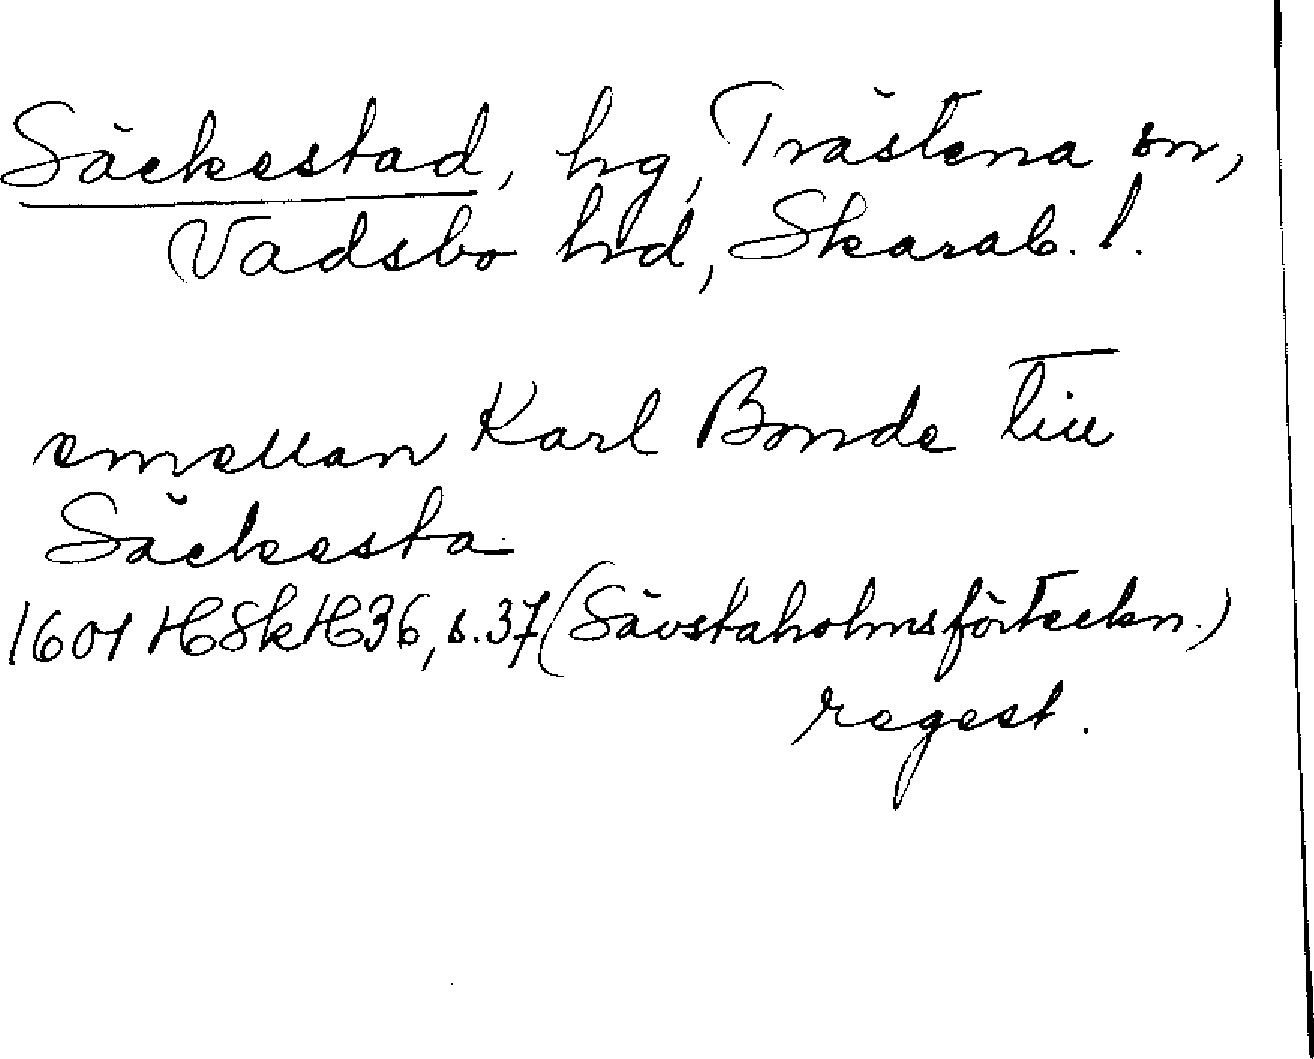 Säckestad, hg, Trästena sn,
Vadsbo hd, Skarab. l.
emellan Karl Bonde till
Säckesta
1601 HSkH36, s.37 (Sävstaholmsförteckn.)
regest.